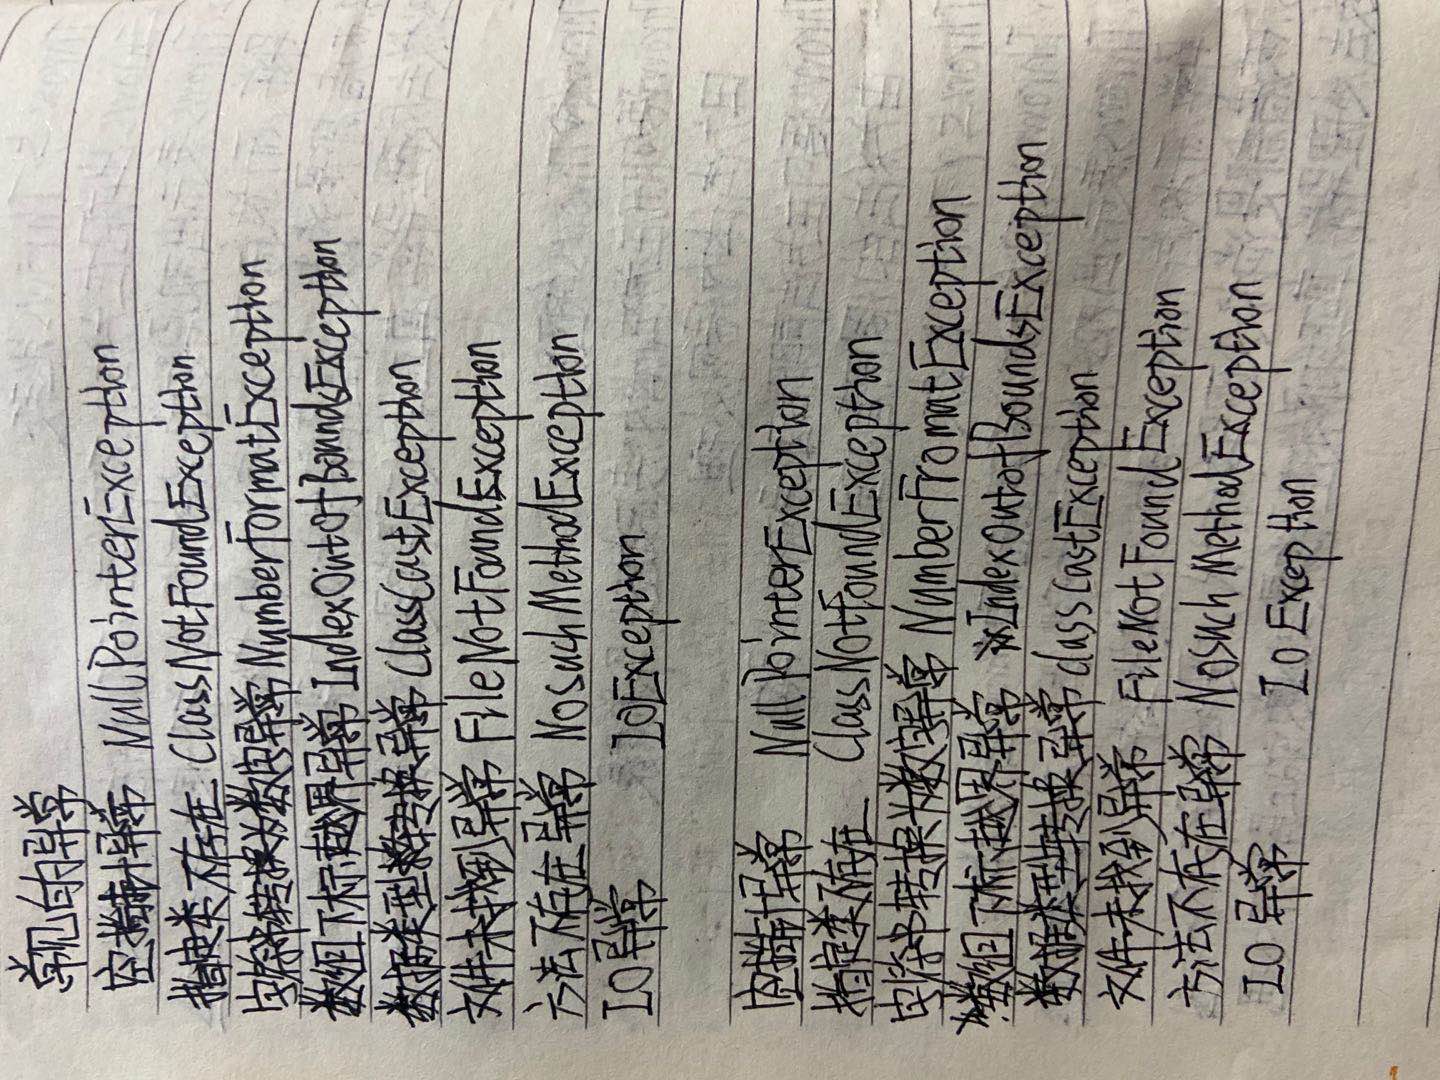 常见的异常
空指针异常 NullPointerException
指定类不存在 ClassNotFoundException
字符串转换为数字异常 NumberFormatException
数组下标越界异常 IndexOutOfBoundsException
数据类型转换异常 ClassCastException
文件未找到异常 FileNotFoundException
方法不存在异常 NoSuchMethodException
IO异常 IOException
空指针异常 NullPointerException
指定类不存在 ClassNotFoundException
字符串转换为数字异常 NumberFromatException
数组下标越界异常 IndexOutofBoundsException
数据类型转换异常 classCastException
文件未找到异常 FileNotFoundException
方法不存在异常 NoSuchMethodException
IO异常 IOException